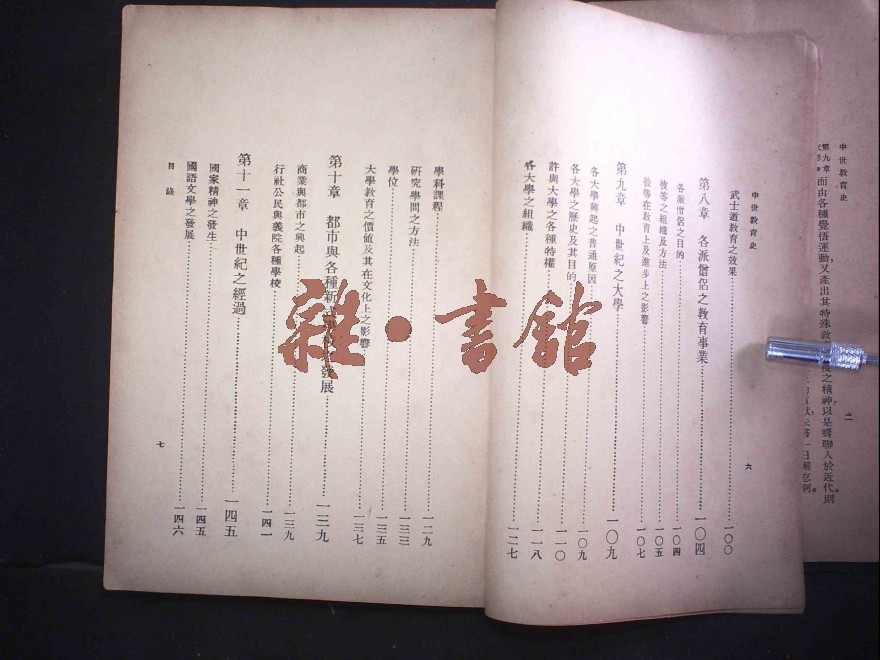 中世教育史
二
中世教育史
武士道教育之效果 一〇〇
第八章 各派僧侶之教育事業 一〇四
各派僧侶之目的 一〇四
彼等之組織及方法 一〇五
彼等在教育上及進步上之影響 一〇七
第九章 中世紀之大學 一〇九
各大學興起之普通原因 一〇九
各大學之歷史及其目的 一一〇
許與大學之各種特權 一一八
各大學之組織 一二七
六
學科課程 一二九
研究學問之方法 一三三
學位 一三五
大學教育之價値及其在文化上之影響 一三七
第十章 都市與各種新式 發展 一三九
商業與都市之興起 一三九
行社公民與義院各種學校 一四一
第十一章 中世紀之經過 一四五
國家精神之發生 一四五
國語文學之發展 一四六
目錄
七
雜·書館